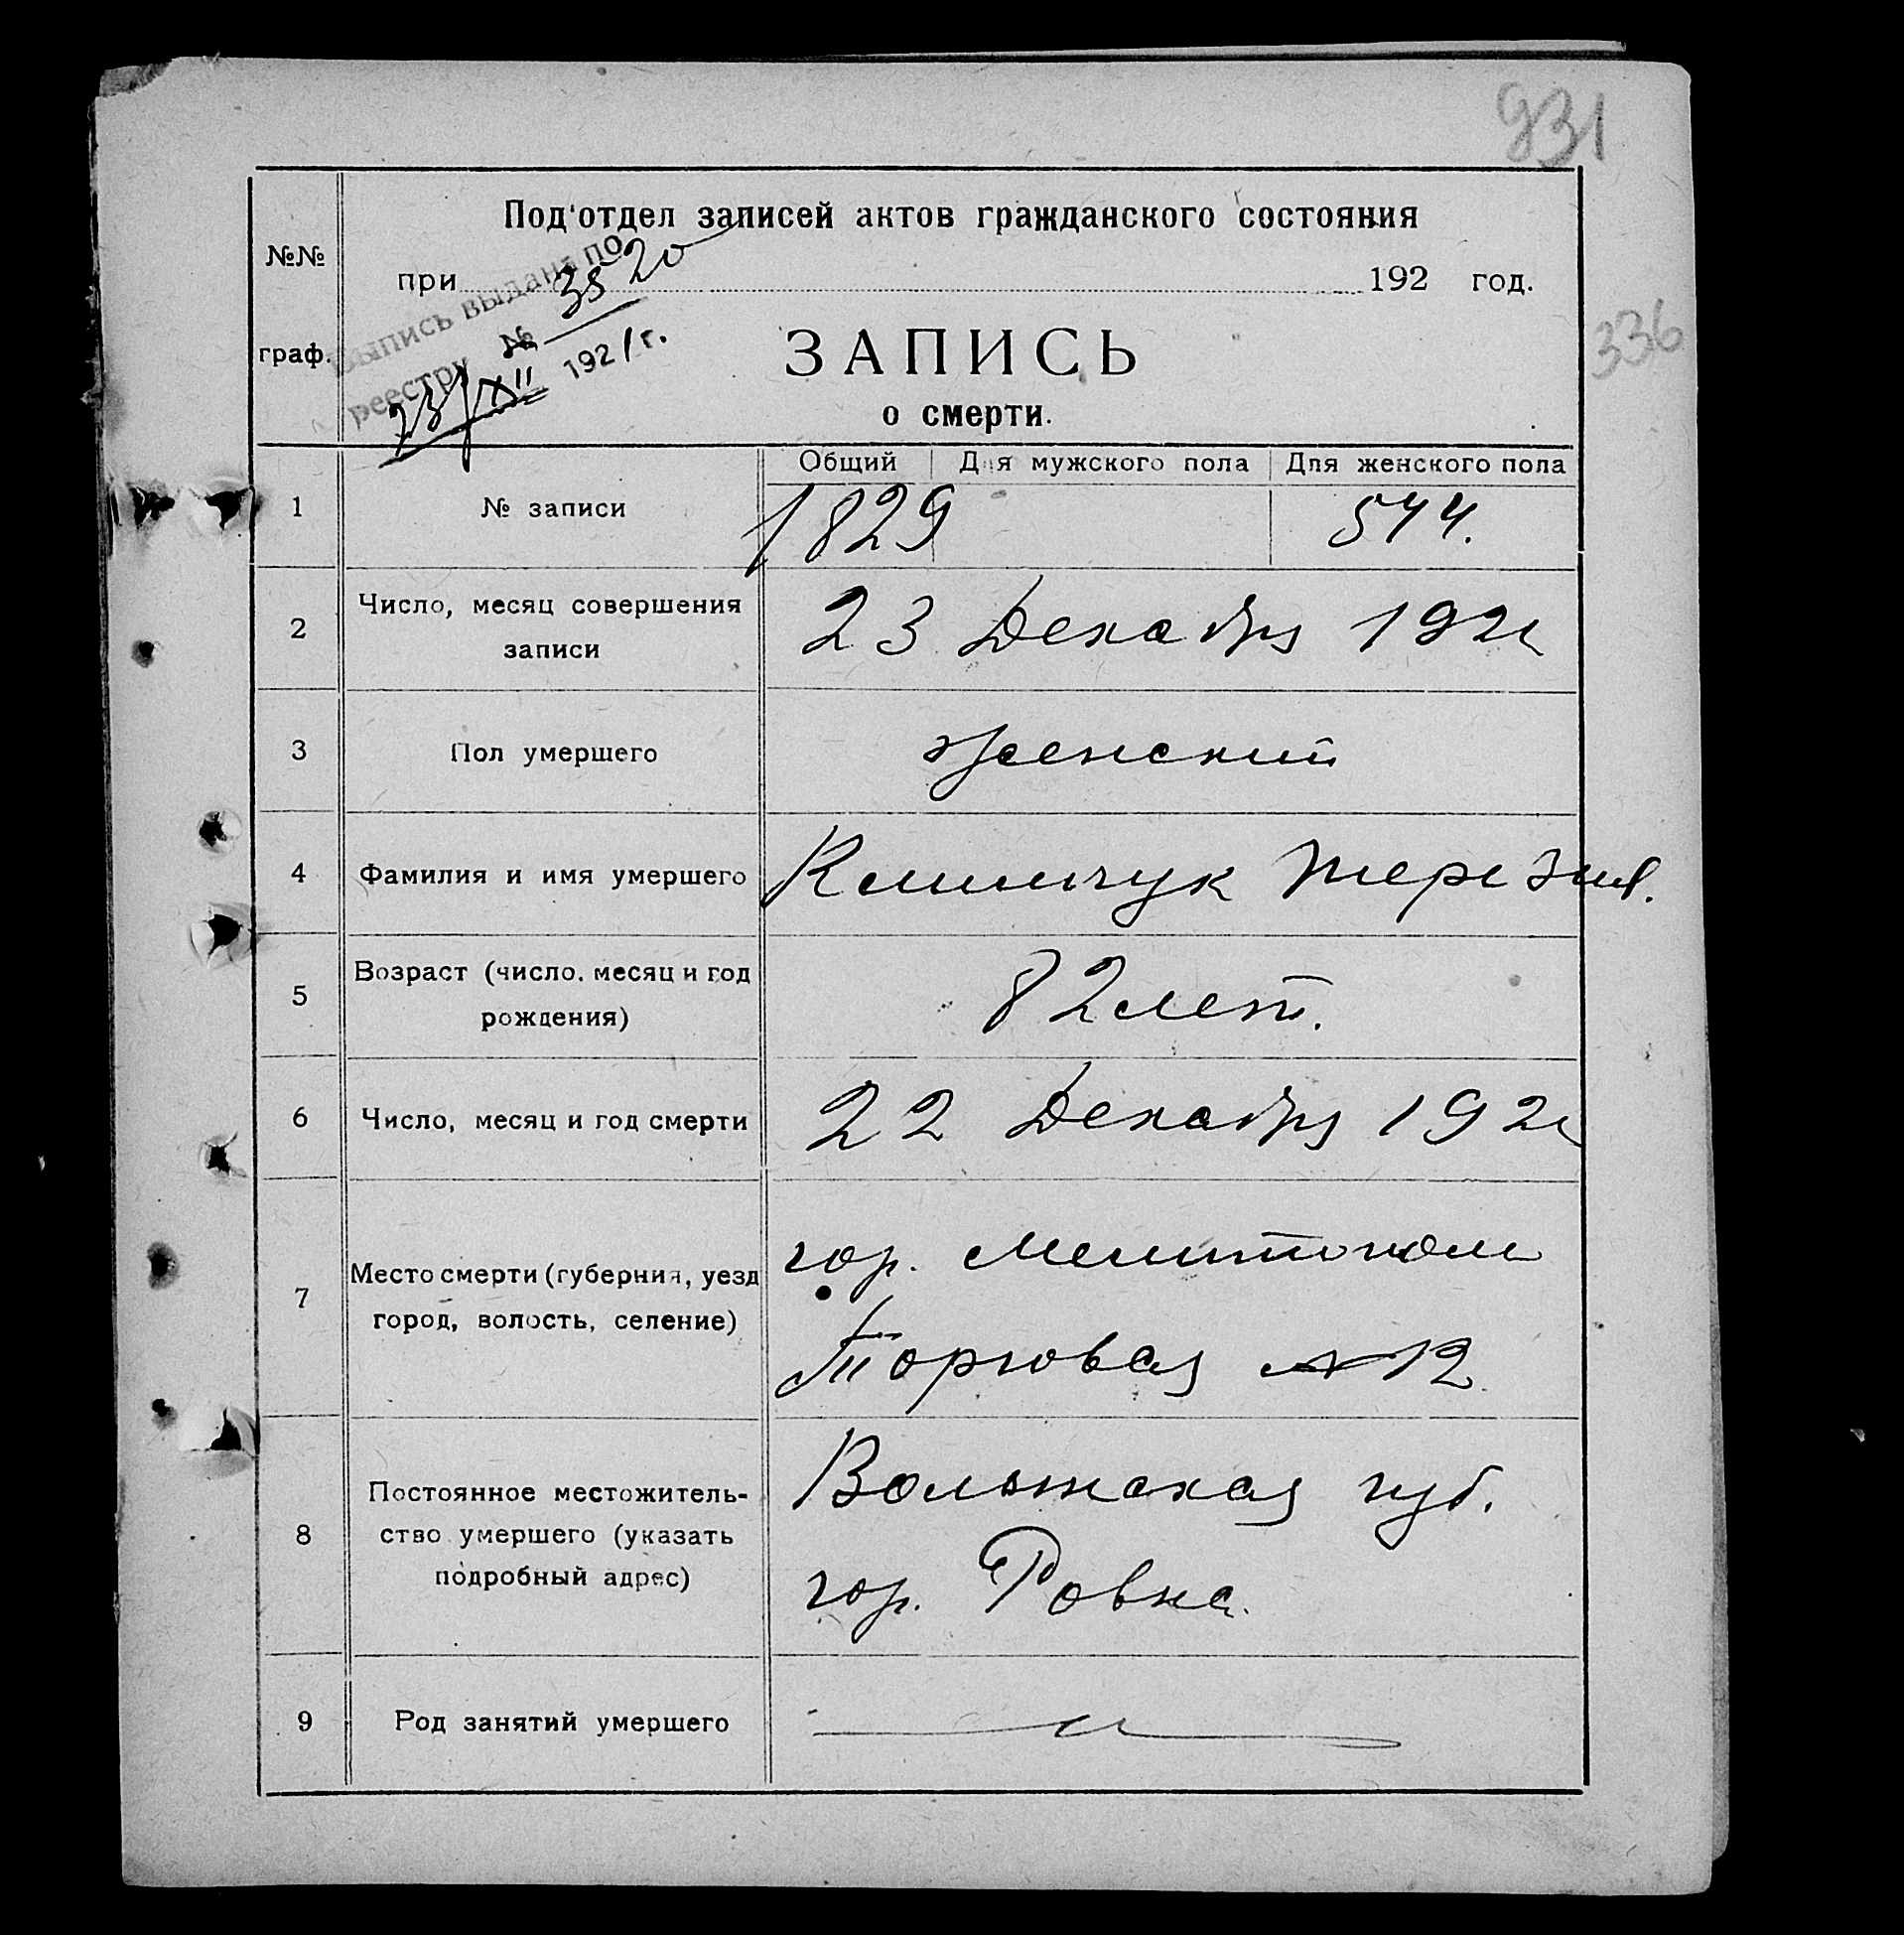 931
Под'отдел записей актов гражданского состояния
№№
при 192 год.
Выпись выдана по
реестру № 3520
23/XII 1921 г.
336
граф.
ЗАПИСЬ
о смерти.
Общий Для мужского пола Для женского пола
1 № записи 1829 544.
2 Число, месяц совершения
записи
23 Декабря 1921
3 Пол умершего женский
4 Фамилия и имя умершего Климчук Терезия.
5 Возраст (число, месяц и год
рождения)
82 лет.
6 Число, месяц и год смерти 22 Декабря 1921
7 Место смерти (губерния, уезд
город, волость, селение)
гор. Мелитополь
Торговая № 12
8 Постоянное местожитель-
ство умершего (указать
подробный адрес)
Волынская губ.
гор. Ровна.
9 Род занятий умершего